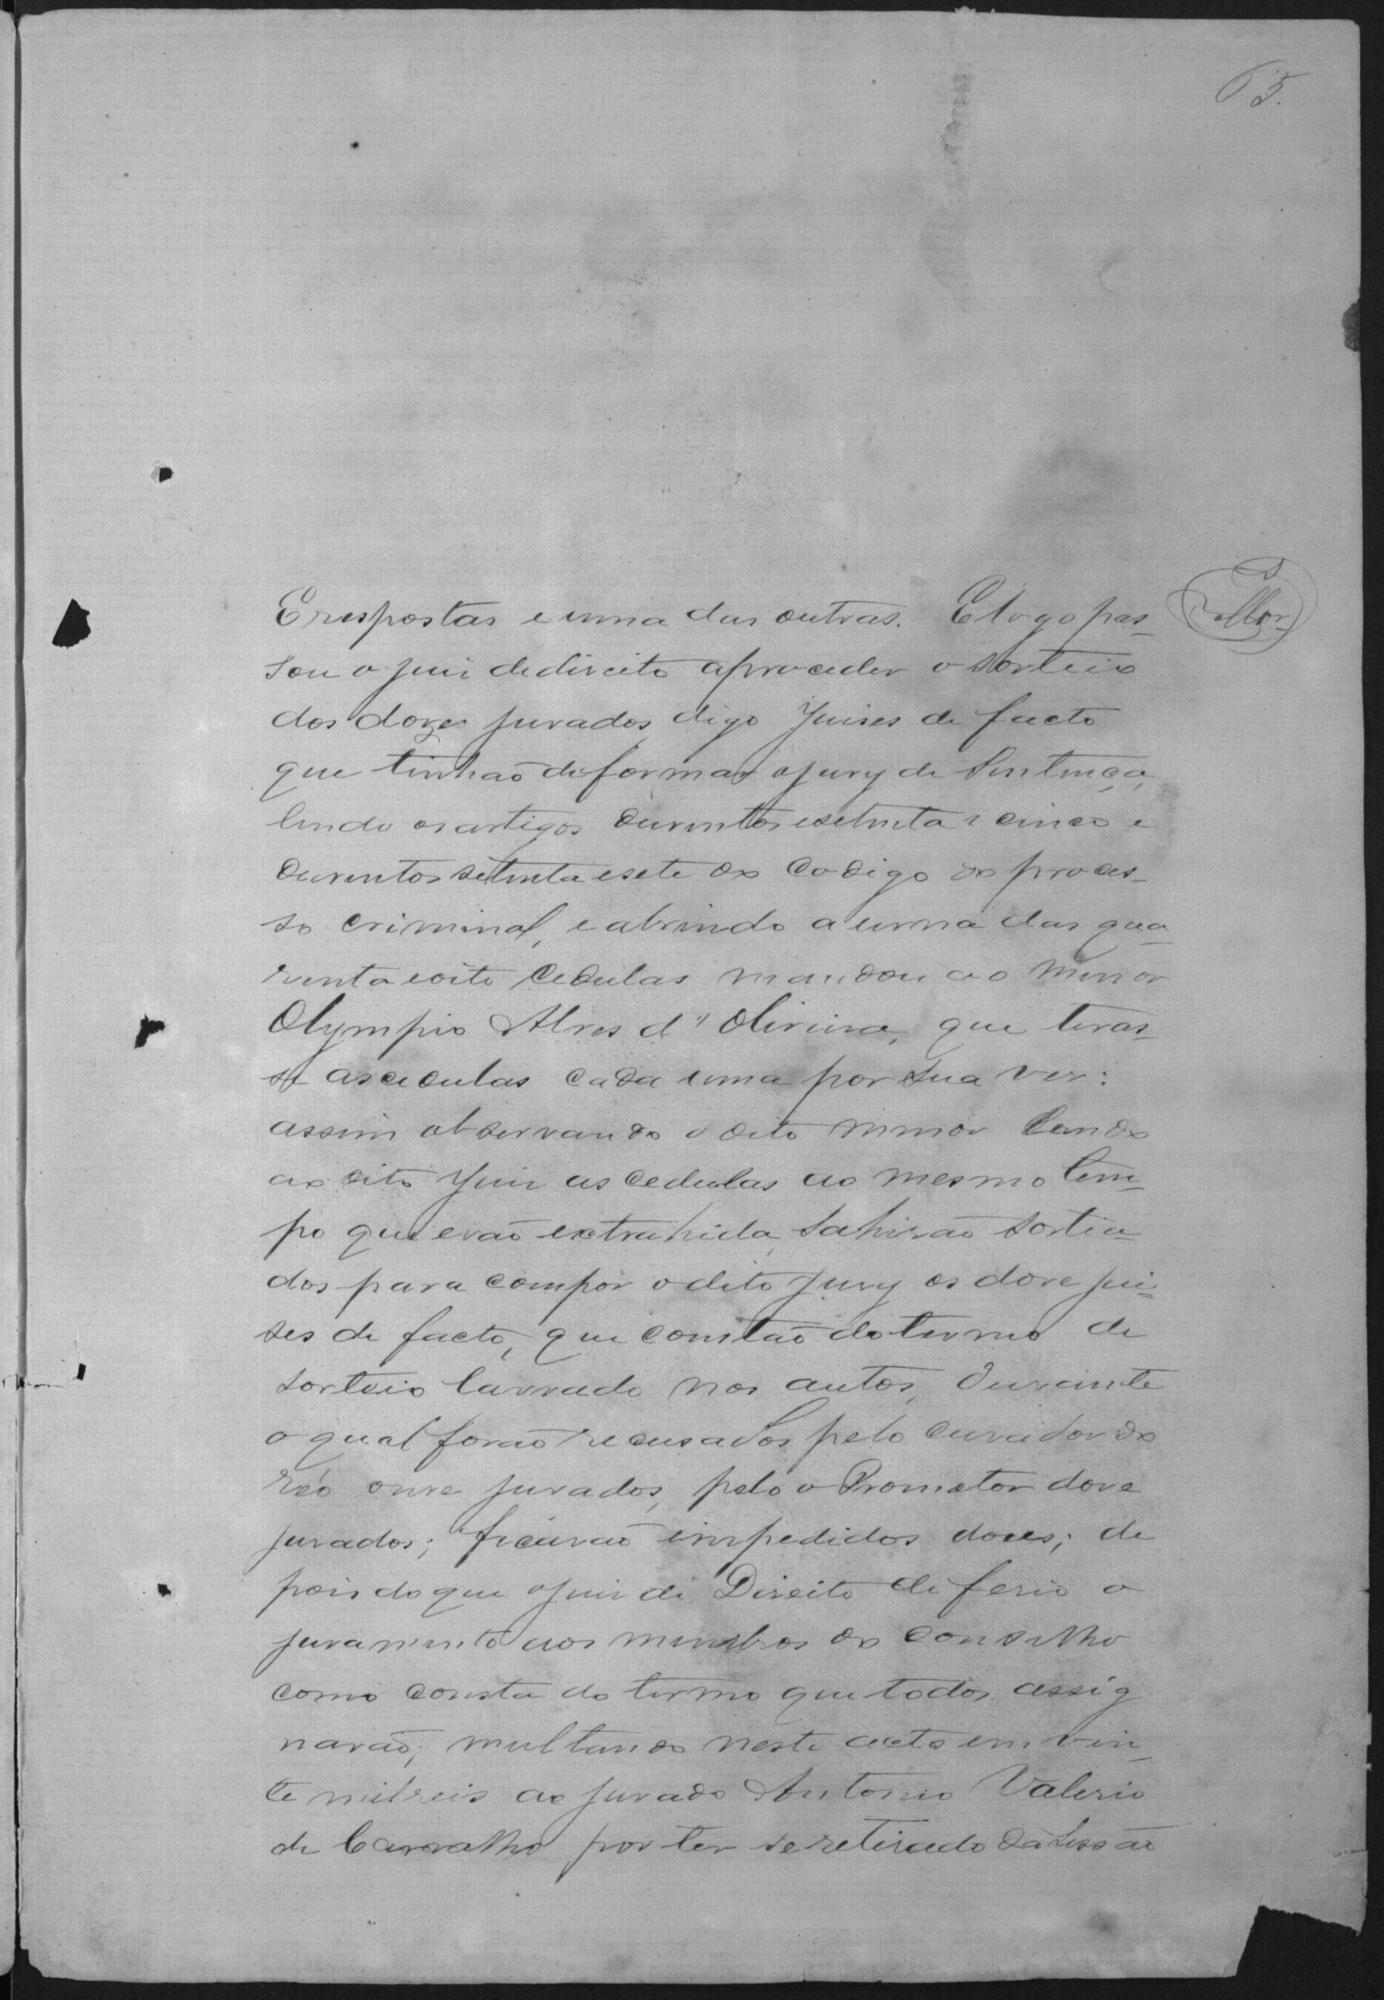 65.
E respostas e uma das outras. E logo pas-
sou o juiz de direito a proceder o sorteio
dos doze jurados digo Juises de facto
que tinhaõ de formar o jury de Sentença,
lendo os artigos duzentos e setenta e cinco e
duzentos setenta e sete do Codigo do proces-
so criminal, e abrindo a urna das qua-
renta e oito cedulas mandou ao menor
Olympio Alves d'Oliveira, que tiras-
se as cedulas cada uma por sua vez:
assim observando o dito menor lendo
ao dito Juiz as cedulas ao mesmo tem-
po que eraõ extrahida, sahiraõ sortea-
dos para compôr o dito Jury os doze jui-
ses de facto, que constaõ do termo de
sorteio lavrado nos autos, durante
o qual foraõ recusados pelo curador do
réo onze jurados, pelo o Promotor doze
jurados; ficaraõ impedidos doees; de
pois do que o juiz de Direito deferio o
juramento aos membros do conselho
como consta do termo que todos assig
naraõ; multando neste acto em vin-
te milreis ao jurado Antonio Valerio
de Carvalho por ter se retirado da sessaõ